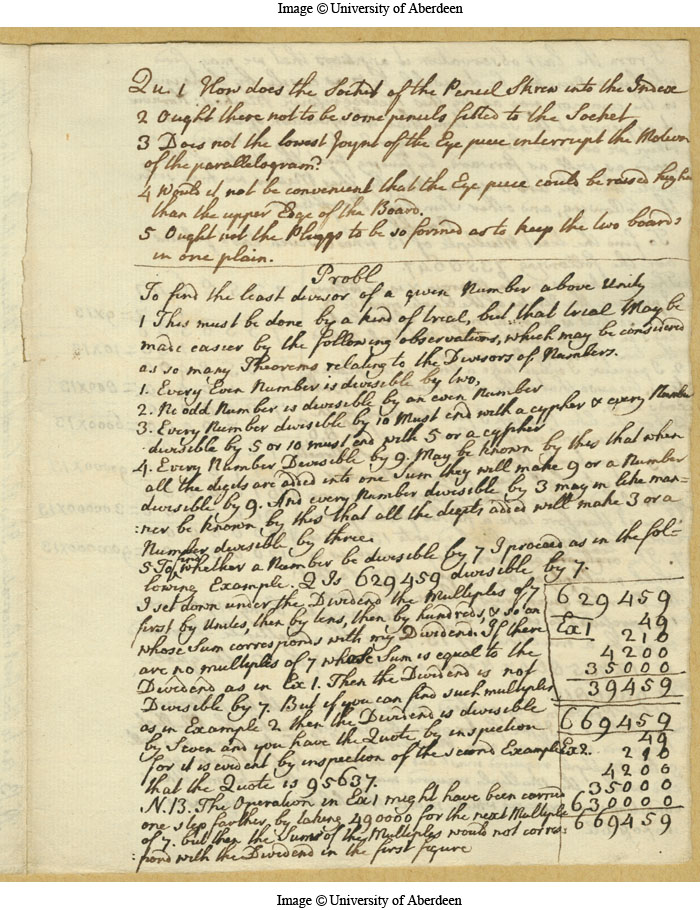 Image © University of Aberdeen
Qu. 1 How does the Socket of the Pencil Skrew into the Index
2 Ought there not to be some pencils fitted to the Socket
3 Does not the lowest Joynt of the Eye piece interrupt the Motion
of the parallelogram?
4 Would it not be convenient that the Eye piece could be raised higher
than the upper Edge of the Board.
5 Ought not the Pluggs to be so formed as to keep the two boards
in one plain.
Probl
To find the least divisor of a given Number above Unity
1 This must be done by a kind of trial, but that trial May be
made easier by the following observations, which may be considered
as so many Theorems relating to the Divisors of Numbers.
1. Every Even Number is divisible by two,
2. No odd Number is divisible by an even Number
3. Every Number divisible by 10 Must end with a cypher & every Number
divisible by 5 or 10 must end with 5 or a cypher
4. Every Number Devisible by 9. May be known by this that when
all the digits are added into one Sum they will make 9 or a Number
divisible by 9. And every Number divisible by 3 may in like man=
:ner be known by this that all the digits added will make 3 or a
Number divisible by three.
5 To find whether a Number be divisible by 7 I proceed as in the fol-
lowing Example. Q Is 629459 divisible by 7.
I set down under the Dividend the Multiples of 7
first by Unites, then by tens, then by hundreds, & so on
whose Sum corresponds with my Dividend. If there
are no multiples of 7 whose Sum is equal to the
Dividend as in Ex 1. Then the Dividend is not
Divisible by 7. But if you can find such multiples
as in Example 2 then the Dividend is divisible
by Seven and you have the Quote by inspection
for it is evident by inspection of the second Example
that the Quote is 95637.
N.B. The Operation in Ex 1 might have been carried
one step farther by taking 490000 for the next Multiple
of 7. but then the Sum of the Multiples would not corres:
pond with the Dividend in the first figure
629459
Ex 1 49
210
4200
35000
39459
669459
49
Ex 2. 210
4200
35000
630000
669459
Image © University of Aberdeen